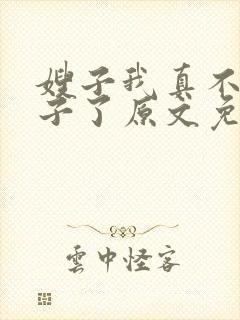 嫂子我真不
子了原文免
雲中怪客